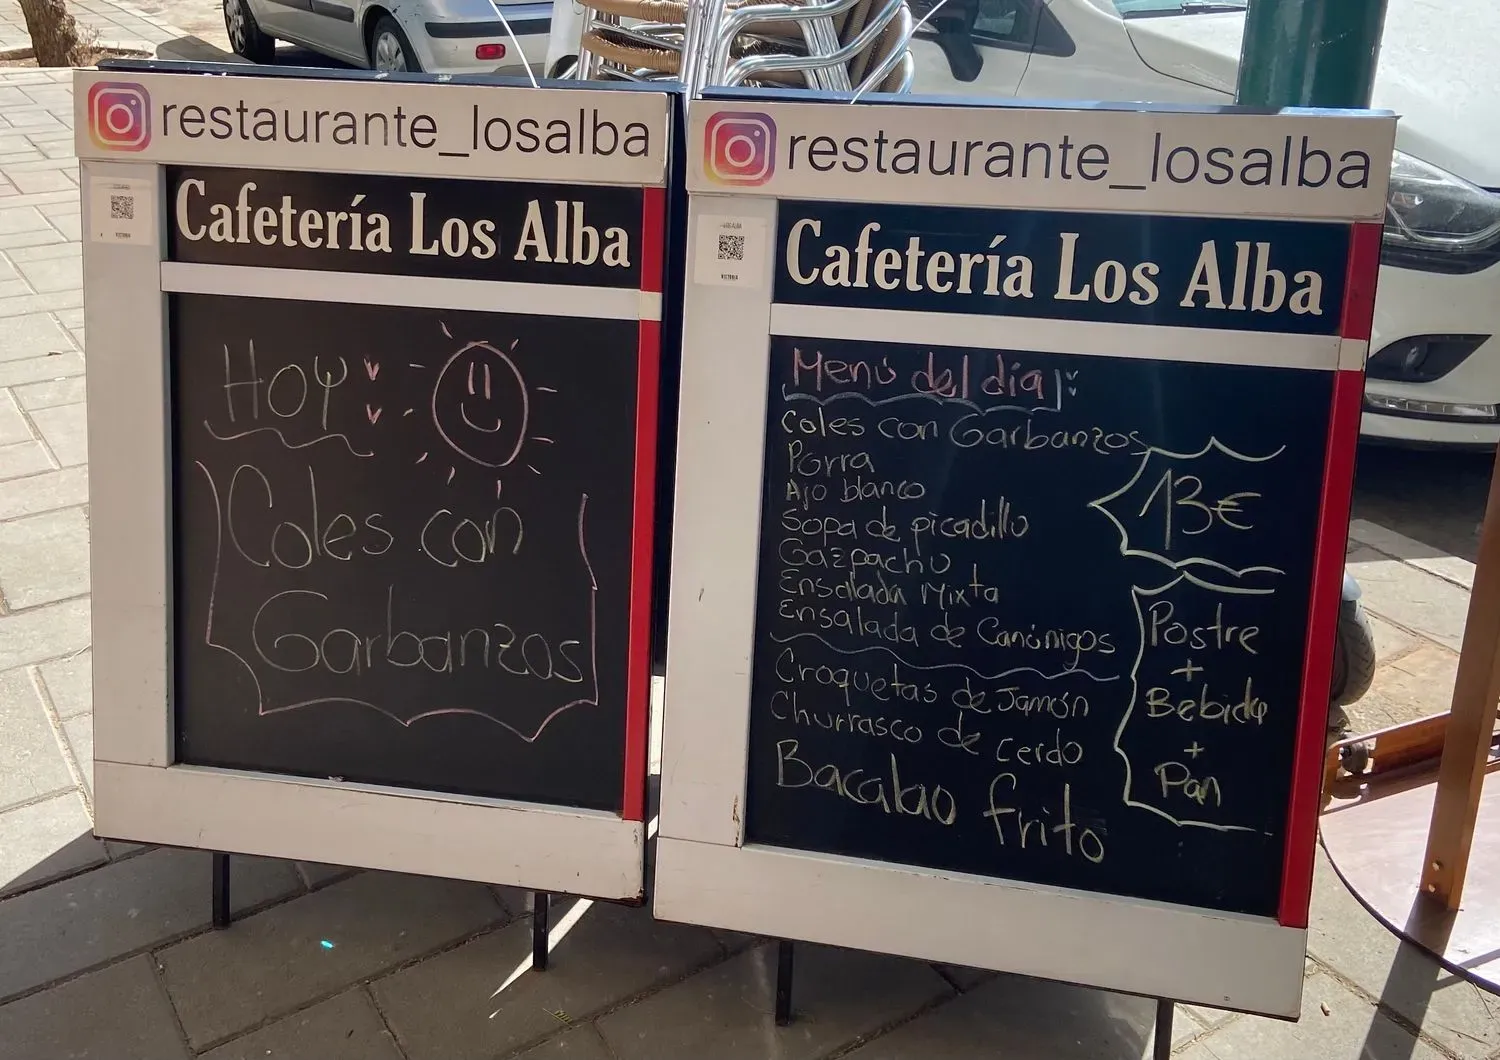 restaurante_losalba
Cafetería Los Alba
Hoy
Coles con
Garbanzos
restaurante_losalba
VICTORIA
Cafetería Los Alba
Menú del día
Coles con Garbanzos
Porra
Ajo blanco
Sopa de picadillo
Gazpacho
Ensalada Mixta
Ensalada de Canónigos
Croquetas de Jamón
Churrasco de cerdo
Bacalao frito
13€
Postre
+
Bebida
+
Pan